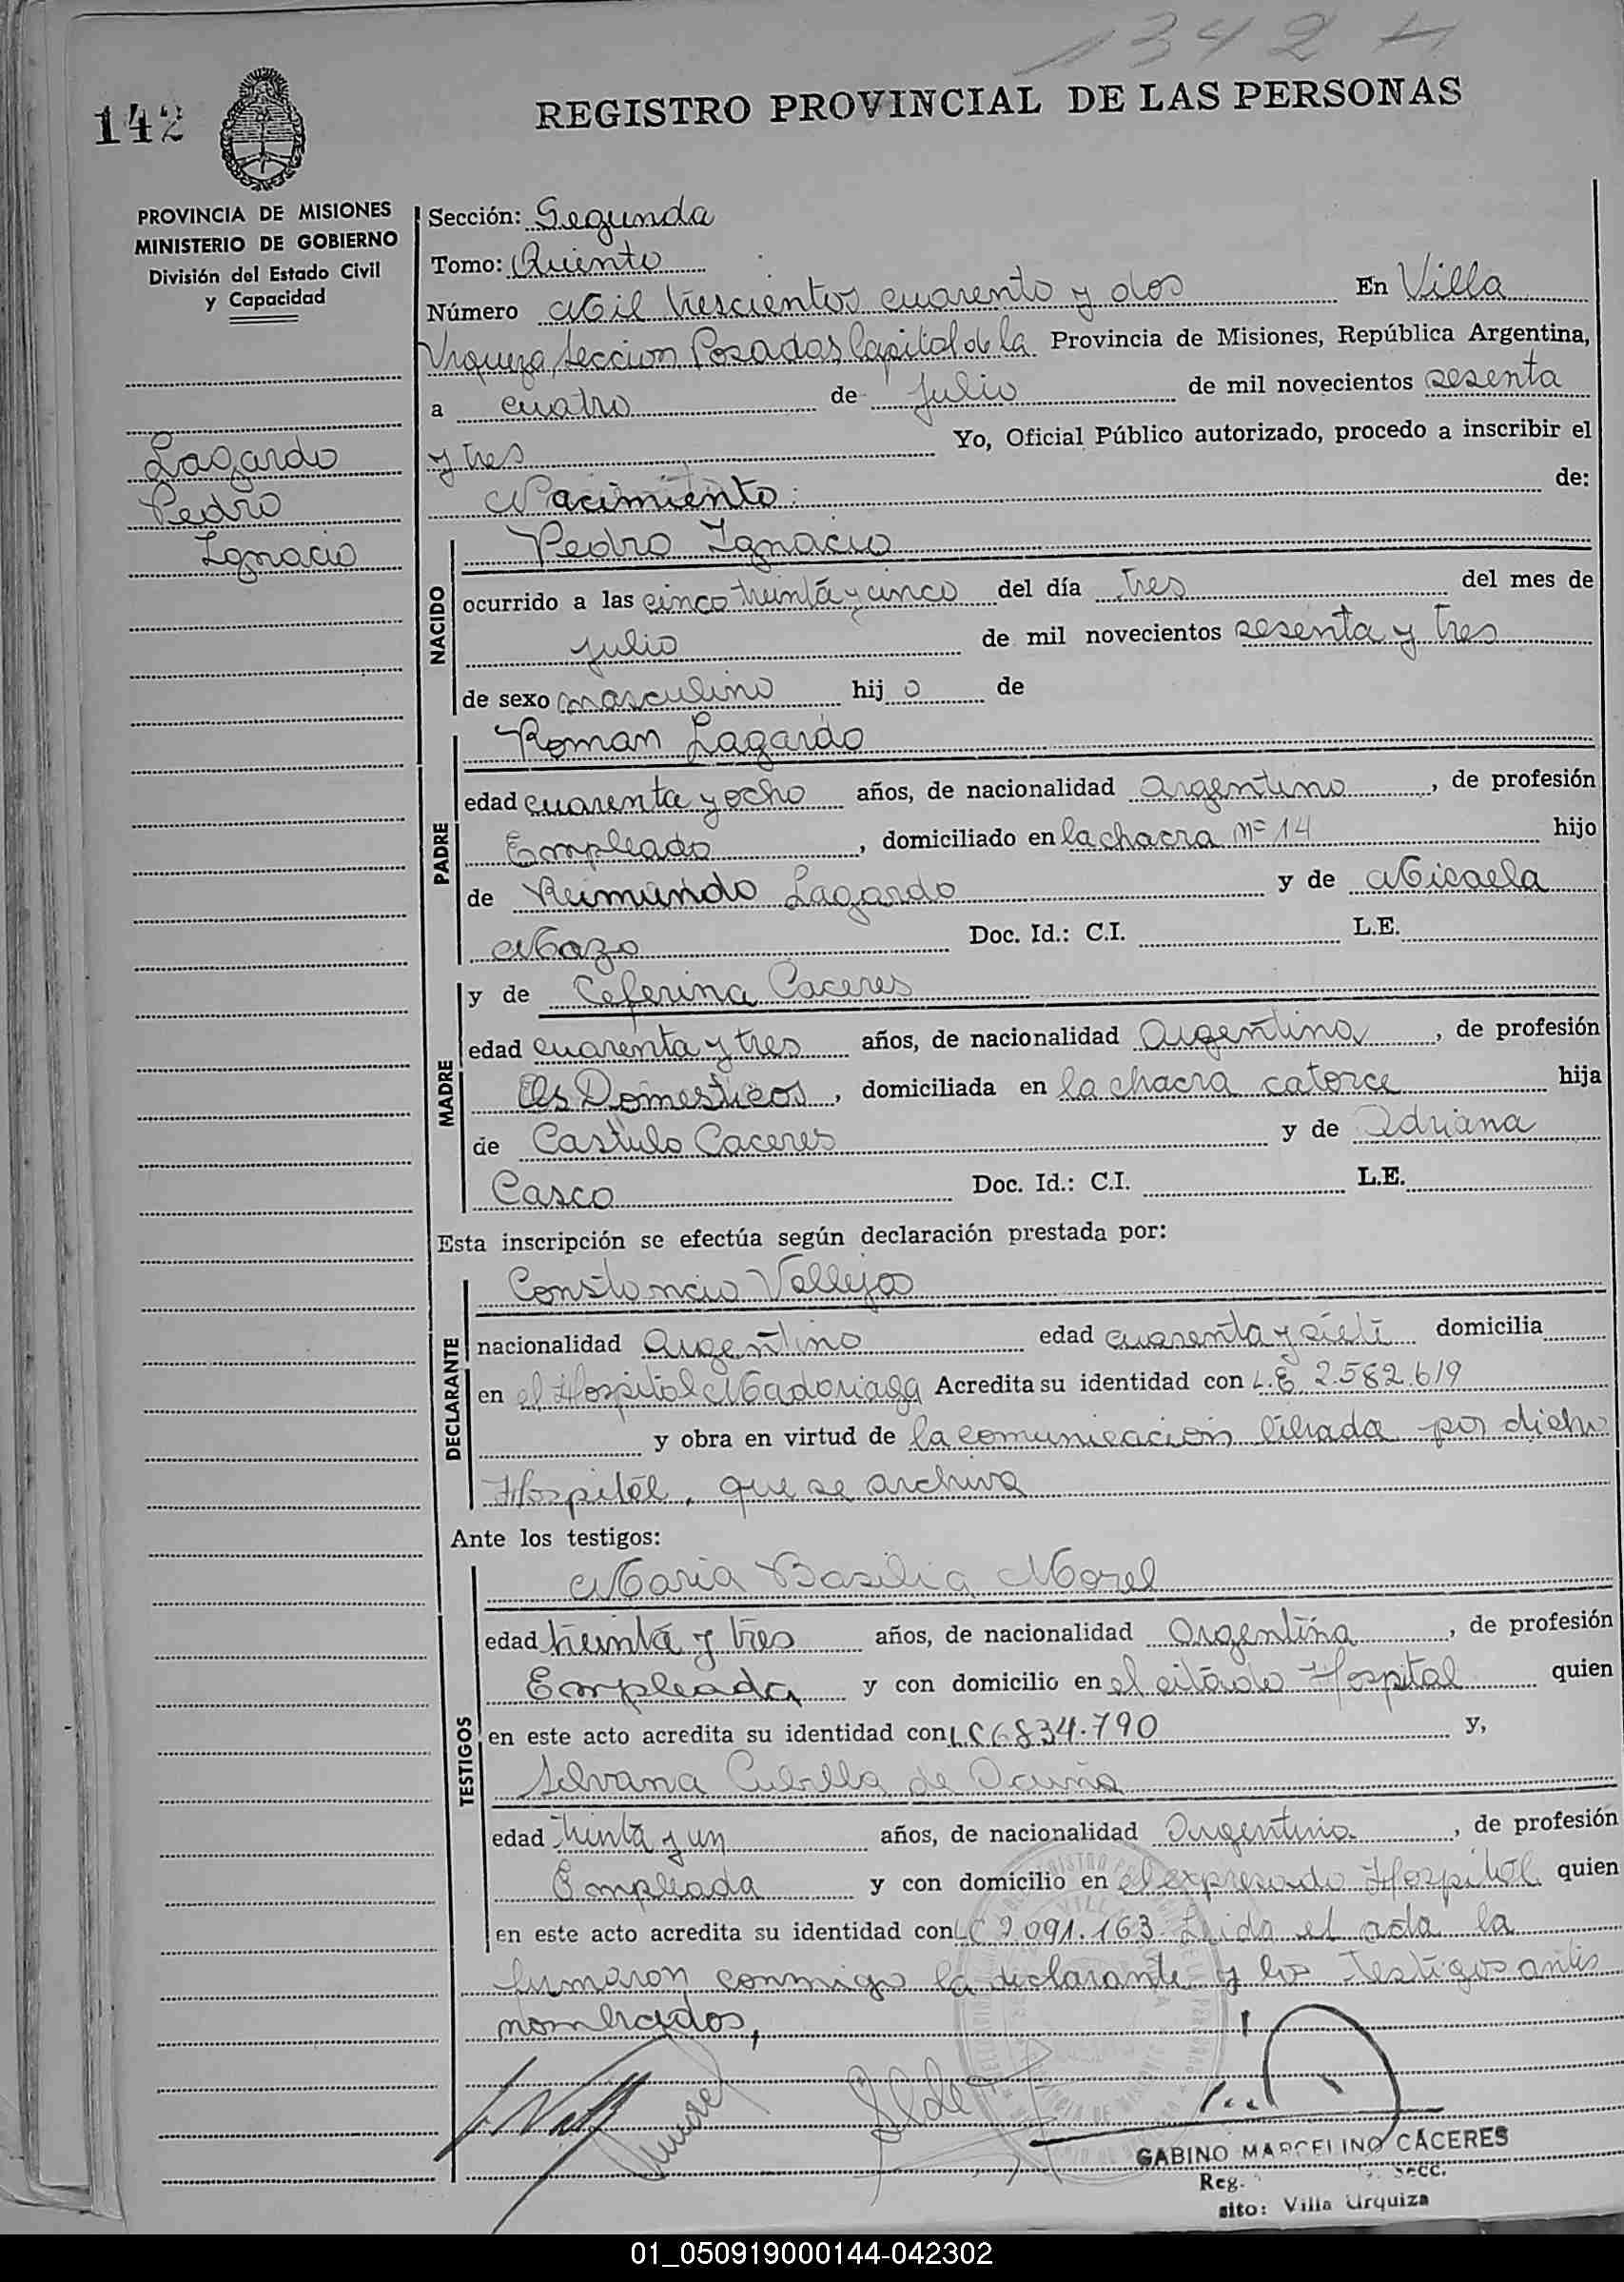 1342
142
REGISTRO PROVINCIAL DE LAS PERSONAS
PROVINCIA DE MISIONES
MINISTERIO DE GOBIERNO
División del Estado Civil
y Capacidad
Lagardo
Pedro
Ignacio
Sección: Segunda
Tomo: Quinto
Número Mil trescientos cuarenta y dos En Villa
Urquiza, Seccion Posadas Capital de la Provincia de Misiones, República Argentina,
a cuatro de Julio de mil novecientos sesenta
y tres Yo, Oficial Público autorizado, procedo a inscribir el
Nacimiento: de:
NACIDO
Pedro Ignacio
ocurrido a las cinco treinta y cinco del día tres del mes de
julio de mil novecientos sesenta y tres
de sexo masculino hij o de
PADRE
Roman Lagardo
edad cuarenta y ocho años, de nacionalidad argentino, de profesión
Empleado, domiciliado en la chacra Nº 14 hijo
de Reimundo Lagardo y de Micaela
Mazo Doc. Id.: C.I. L.E.
MADRE
y de Ceferina Caceres
edad cuarenta y tres años, de nacionalidad Argentina, de profesión
Qs Domesticos, domiciliada en la chacra catorce hija
de Castulo Caceres y de Adriana
Casco Doc. Id.: C.I. L.E.
Esta inscripción se efectúa según declaración prestada por:
DECLARANTE
Constancio Vallejos
nacionalidad argentino edad cuarenta y siete domicilia
en el Hospital Madariaga Acredita su identidad con L.E 2.582.619
y obra en virtud de la comunicación librada por dicho
Hospital, que se archiva
Ante los testigos:
TESTIGOS
Maria Basilia Morel
edad treinta y tres años, de nacionalidad Argentina, de profesión
Empleada y con domicilio en el citado Hospital quien
en este acto acredita su identidad con LC 6834.790 y,
Silvana Cubilla de Acuña
edad treinta y un años, de nacionalidad Argentina, de profesión
Empleada y con domicilio en el expresado Hospital quien
en este acto acredita su identidad con LC 2.091.163 Leida el acta la
firmaron conmigo la declarante y los testigos antes
nombrados,
GABINO MARCELINO CÁCERES
Reg. Secc.
sito: Villa Urquiza
01_050919000144-042302